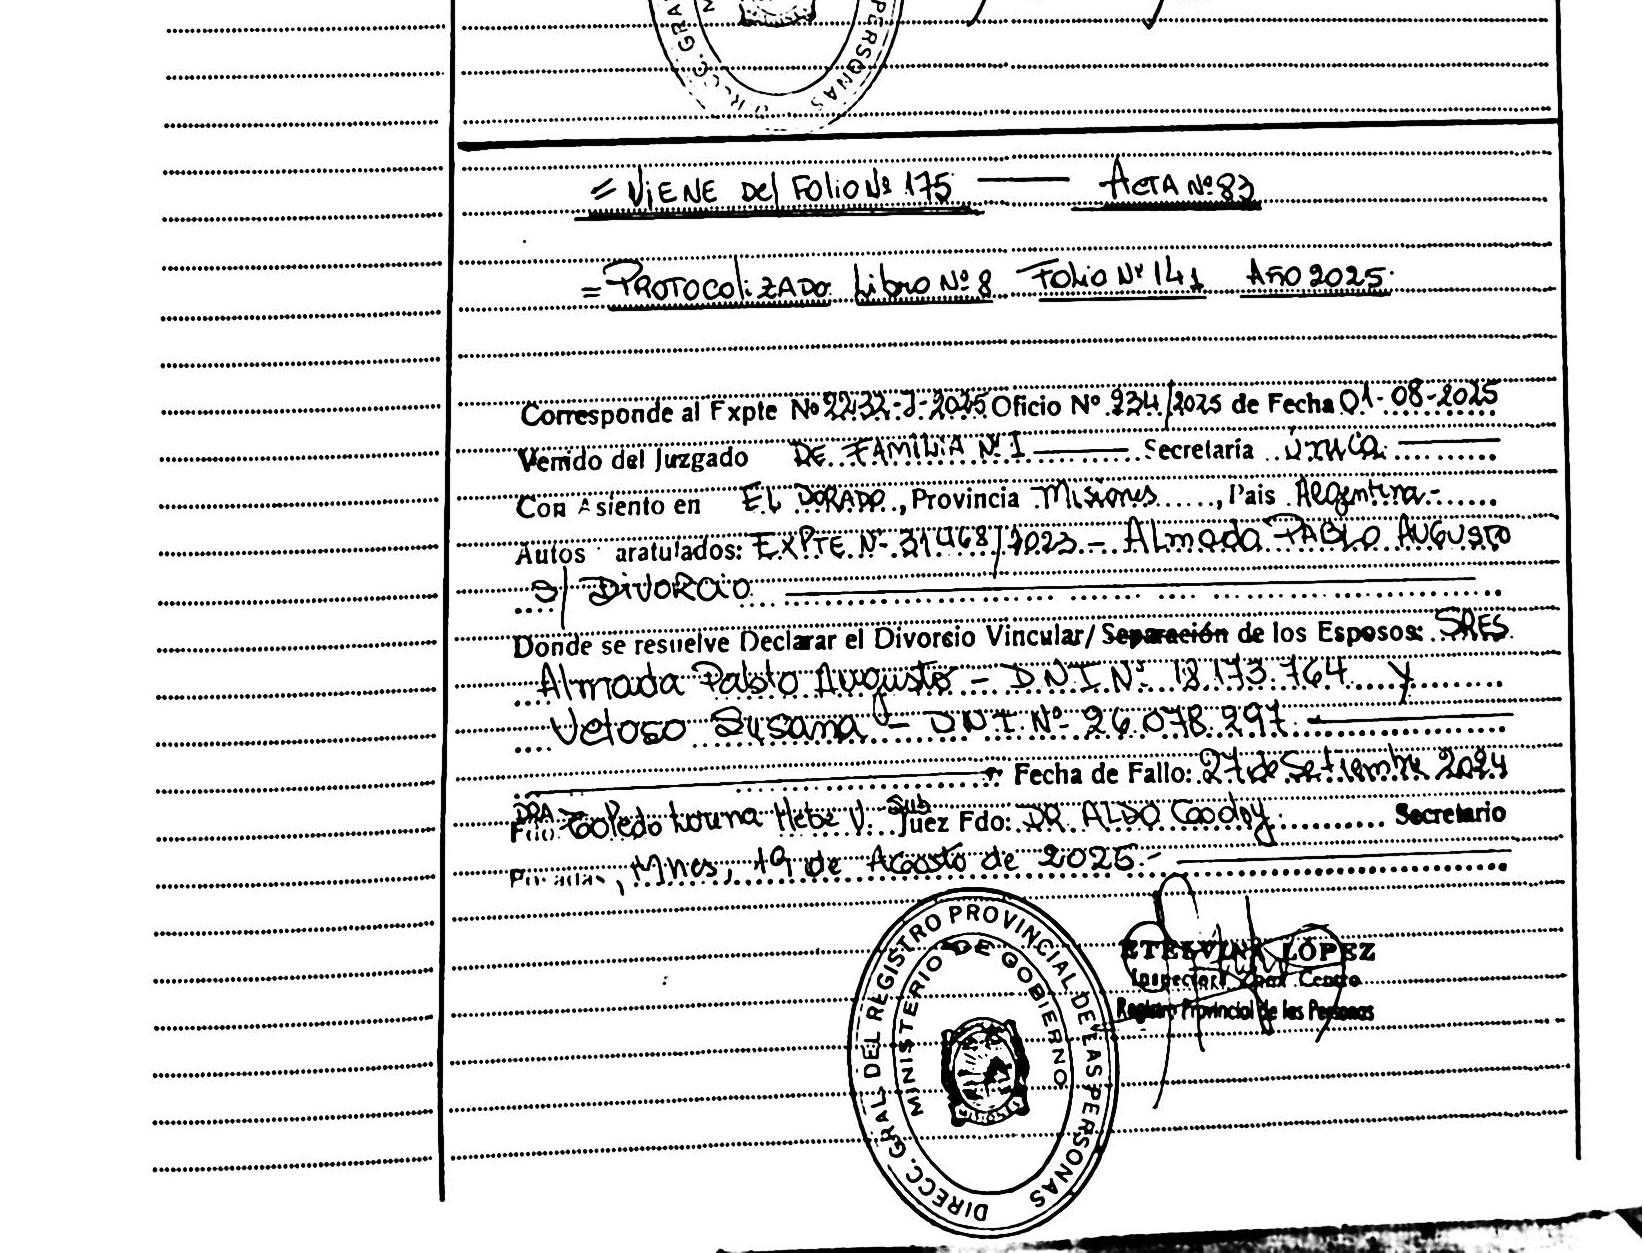 DIRECC. GRA
PERSONAS
= VIENE Del FOLIO Nº 175 — ACTA Nº 83
= PROTOCOLIZADO Libro Nº 8 FOLIO Nº 141 AÑO 2025.
Corresponde al Expte Nº 2232-J-2025 Oficio Nº 234/2025 de Fecha 01-08-2025
Venido del Juzgado DE FAMILIA Nº I — Secretaría ÚNICA. —
Con Asiento en EL DORADO, Provincia Misiones, Pais Argentina.-
Autos aratulados: EXPTE Nº 31468/2023 - Almada PABLO AUGUSTO
S/ DIVORCIO
Donde se resuelve Declarar el Divorcio Vincular/ Separación de los Esposos: SRES.
Almada Pablo Augusto - DNI Nº 18.173.764 y
Veloso Susana - DNI Nº 26.078.297.
Fecha de Fallo: 27 de Setiembre 2024
DRA Toledo Hebe V. Sub Juez Fdo: DR. ALDO Godoy Secretario
Mnes, 19 de Agosto de 2025.-
DIRECC. GRAL. DEL REGISTRO PROVINCIAL DE LAS PERSONAS
MINISTERIO DE GOBIERNO
ETELVINA LÓPEZ
Inspectora Zona Centro
Registro Provincial de las Personas